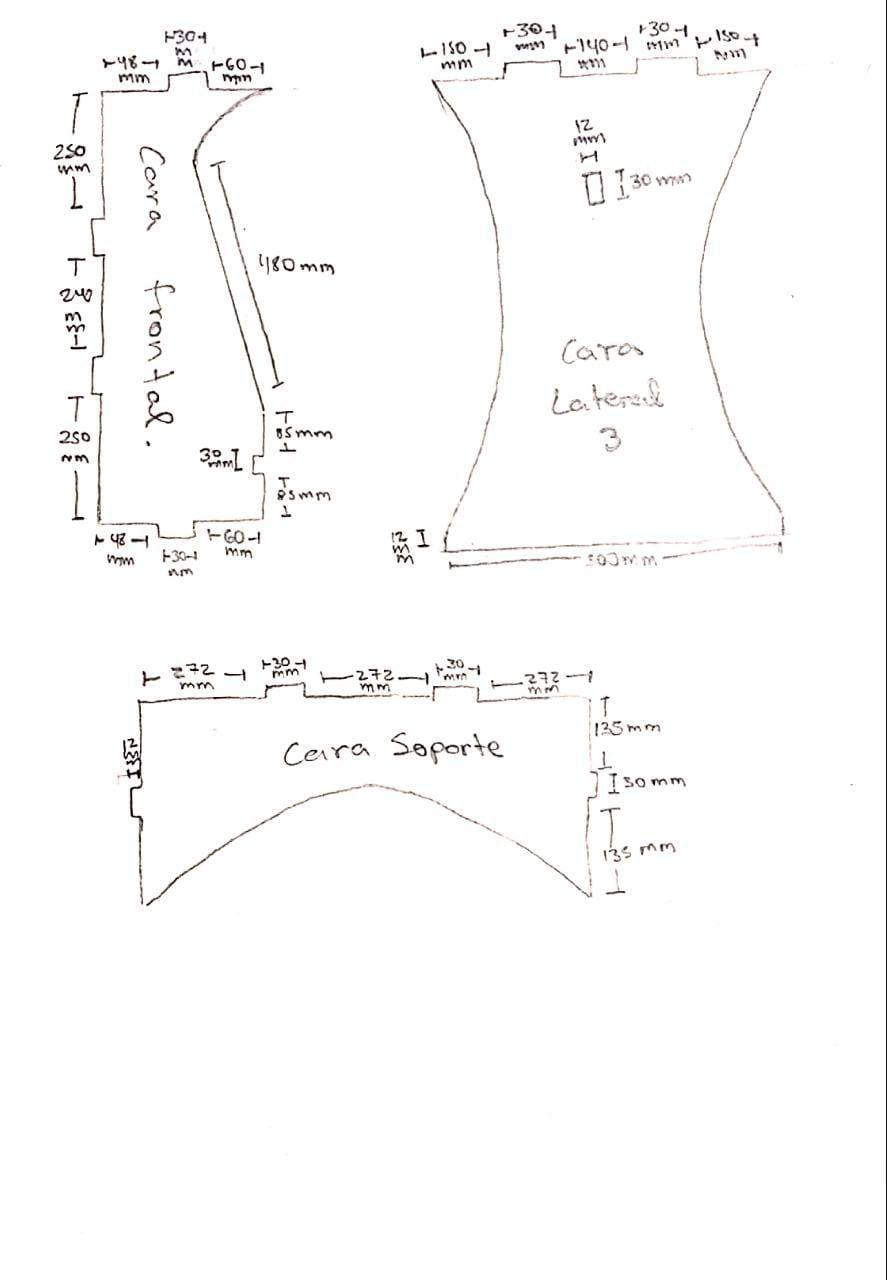 30
m
m
48
mm
60
mm
250
mm
Cara frontal.
480mm
240
m
m
250
mm
85mm
30
mm
85mm
48
mm
30
mm
60
mm
150
mm
30
mm
140
mm
30
mm
150
mm
12
mm
30mm
Cara
Lateral
3
12
m
m
500mm
272
mm
30
mm
272
mm
30
mm
272
mm
12
mm
Cara Soporte
135mm
30mm
135mm